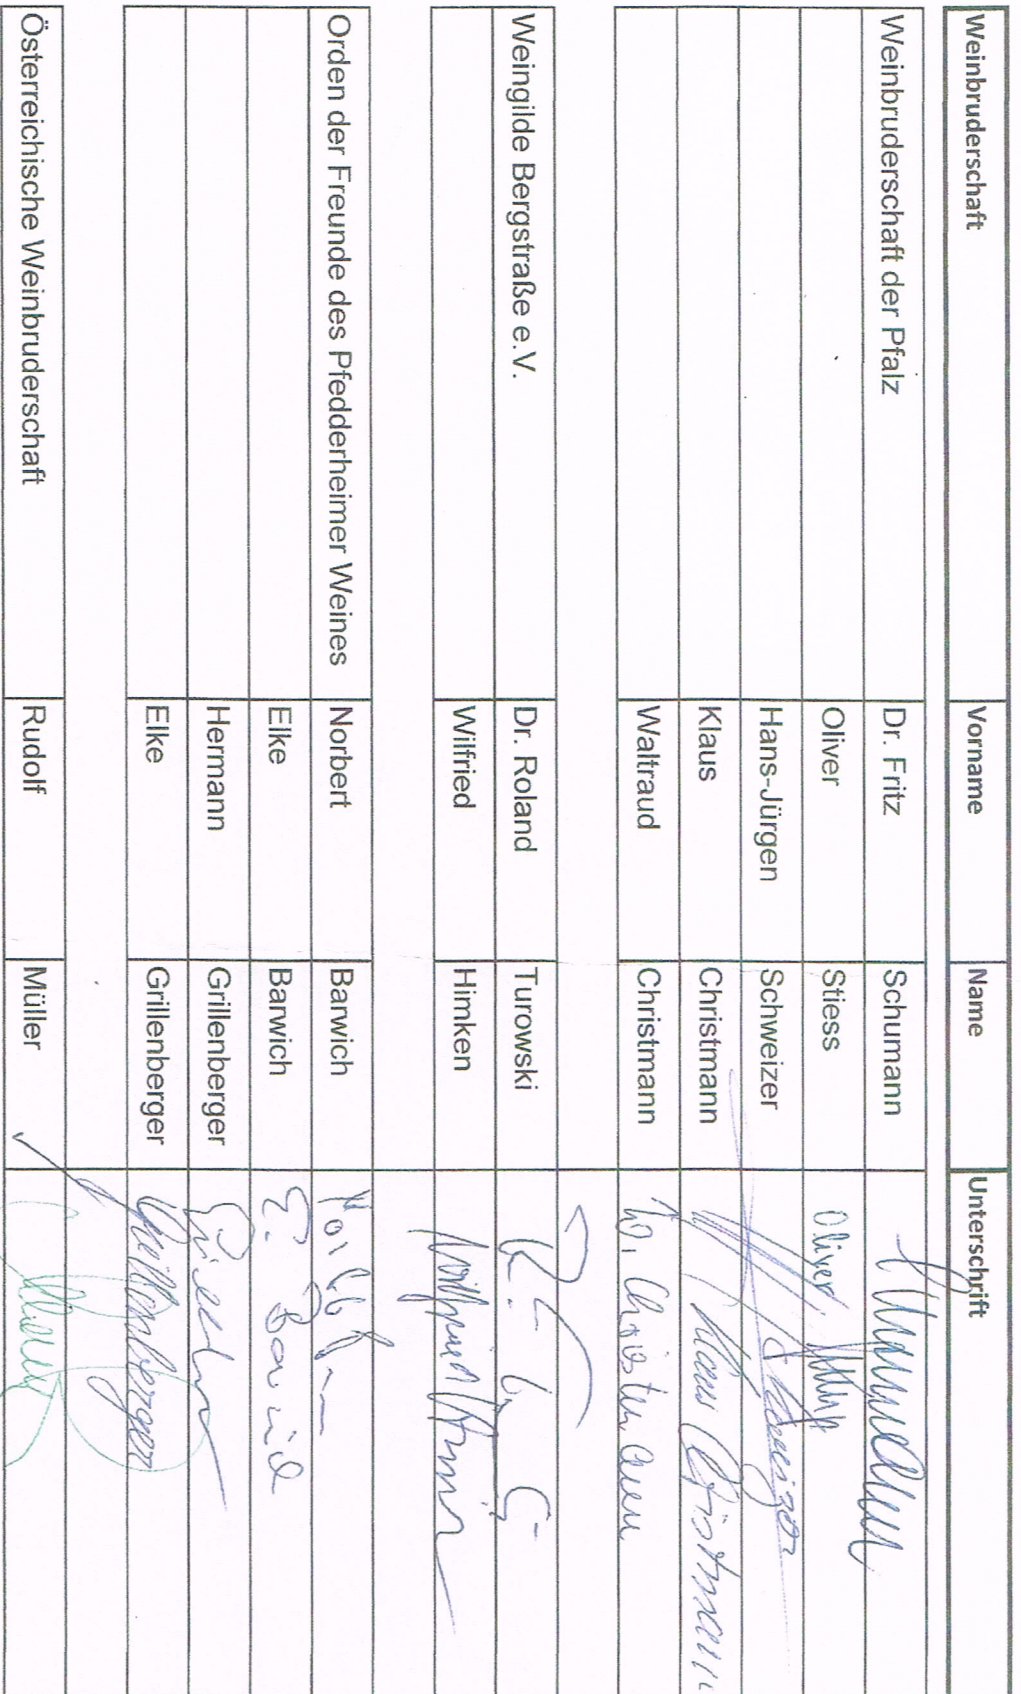 Weinbruderschaft Vorname Name Unterschrift
Weinbruderschaft der Pfalz Dr. Fritz Schumann
Oliver Stiess Oliver
Hans-Jürgen Schweizer Schweizer
Klaus Christmann Klaus Christmann
Waltraud Christmann W. Christmann
Weingilde Bergstraße e.V. Dr. Roland Turowski
Wilfried Himken
Orden der Freunde des Pfedderheimer Weines Norbert Barwich
Elke Barwich E. Barwich
Hermann Grillenberger
Elke Grillenberger Grillenberger
Österreichische Weinbruderschaft Rudolf Müller